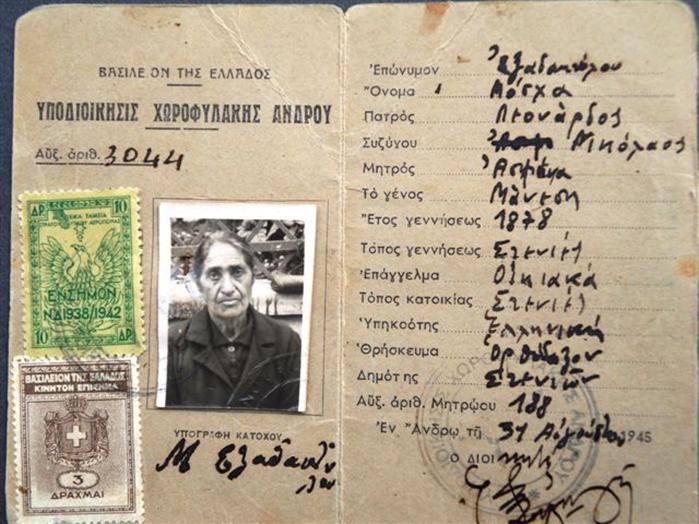 ΒΑΣΙΛΕΙΟΝ ΤΗΣ ΕΛΛΑΔΟΣ
ΥΠΟΔΙΟΙΚΗΣΙΣ ΧΩΡΟΦΥΛΑΚΗΣ ΑΝΔΡΟΥ
Αὔξ. ἀριθ. 3044
ΔΡ. 10 10 ΔΡ.
ΤΑΜΕΙΑ
ΕΝΣΗΜΟΝ
Ν.Δ 1938/1942
10 ΔΡ. ΔΡ. 10
ΒΑΣΙΛΕΙΟΝ ΤΗΣ ΕΛΛΑΔΟΣ
ΚΙΝΗΤΟΝ ΕΠΙΣΗΜΑ
3
ΔΡΑΧΜΑΙ
ΥΠΟΓΡΑΦΗ ΚΑΤΟΧΟΥ
Μ
Ἐπώνυμον Ἐξαδακτύλου
Ὄνομα Μόσχα
Πατρὸς Λεονάρδος
Συζύγου Νικόλαος
Μητρὸς
Τὸ γένος
Ἔτος γεννήσεως 1878
Τόπος γεννήσεως Στενιές
Ἐπάγγελμα Οἰκιακά
Τόπος κατοικίας Στενιές
Ὑπηκοότης Ἑλληνική
Θρήσκευμα Ὀρθόδοξον
Δημότης Στενιῶν
Αὔξ. ἀριθ. Μητρώου 188
Ἐν Ἄνδρῳ τῇ 31 Αὐγούστου 1945
Ο ΔΙΟΙΚΗΤΗΣ